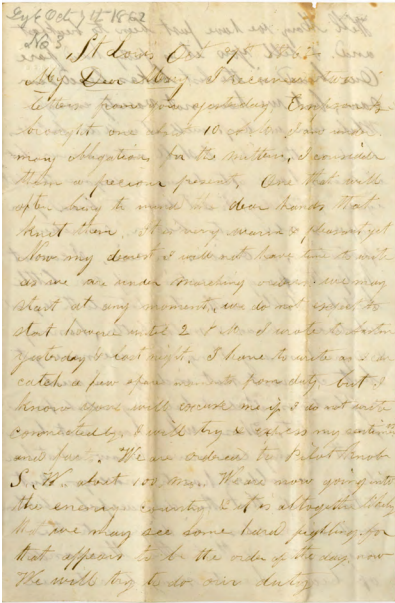 Oct 7th 1862
No 3
St Louis Oct 7th 1862
My Dear I received two
letters from you yesterday
brought one about 10 o'clock
many obligations for the mittens, I consider
them a precious present, One that will
oft bring to mind the dear hands that
knit them. it is very warm & pleasant yet
Now my dearest I will not have time to write
as we are under marching orders. we may
start at any moment, we do not expect to
start however until 2 P.M. I wrote
yesterday & last night. I have to write as I can
catch a few spare moments from duty but I
know you will excuse me if I do not write
connectedly. I will try & express my
and fact. We are ordered to Pilot Knob
S. W. about 100 ms. We are now going into
the enemies country & it is altogether likely
that we may see some hard fighting for
that appears to be the order of the day now
We will try to do our duty